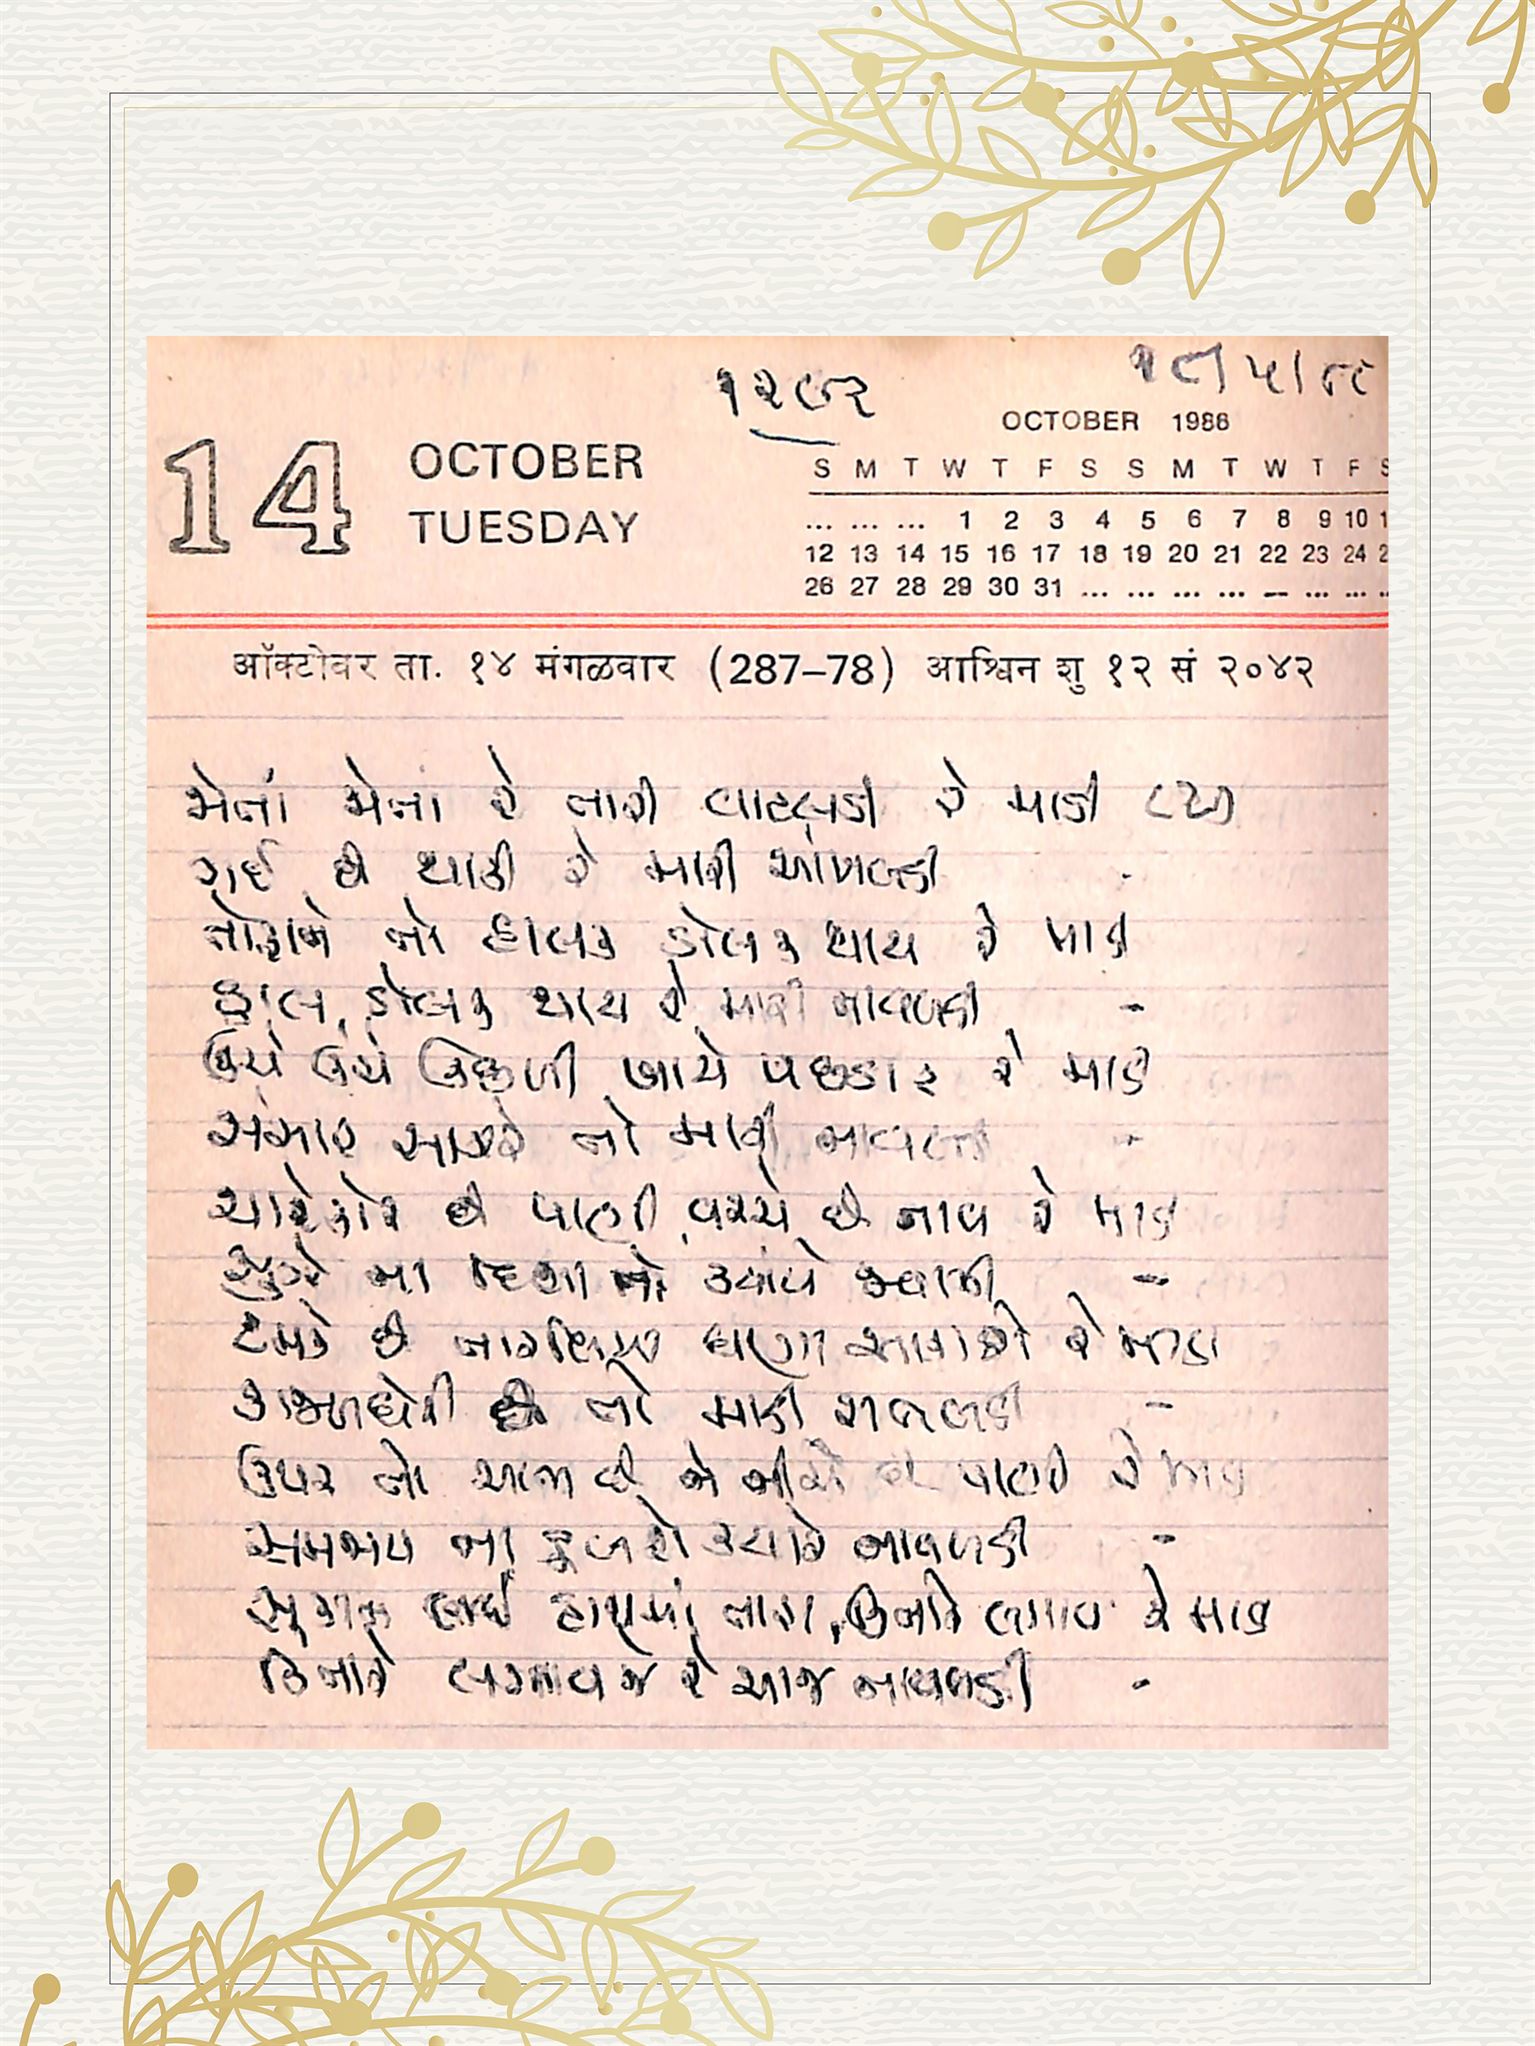 ૧૨૭૨
૧૮/૫/૮૮
14
OCTOBER
TUESDAY
OCTOBER 1986
S M T W T F S S M T W T F S
... ... ... 1 2 3 4 5 6 7 8 9 10 1
12 13 14 15 16 17 18 19 20 21 22 23 24 2
26 27 28 29 30 31 ... ... ... ... ... ... ... ..
ऑक्टोबर ता. १४ मंगळवार (287–78) आश्विन शु १२ सं २०४२
જોતાં જોતાં રે તારી વાટલડી રે માડી (૨)
ગઈ છે થાકી રે મારી આંખલડી
તોફાને તો હાલક ડોલક થાય રે માડી
હાલ ડોલક થાય રે મારી નાવલડી -
ઊંચે ઊંચે ઉછળી ખાયે પછડાટ રે માડી
સંસાર સાગરે તો મારી નાવલડી -
ચારેકોર છે પાણી વચ્ચે છે નાવ રે માડી
સુઝે ના દિશા તો ક્યાંયે જવાની -
ટમકે છે તારલિયા ઘણા આકાશે રે માડી
કાજળઘેરી છે તો માડી રાતલડી -
ઉપર તો આભ છે ને નીચે છે પાણી રે માડી
સમજાય ના ડૂબશે ક્યારે નાવલડી -
સુકાન લઈ હાથમાં તારા, કિનારે લગાવ રે માડી
કિનારે લગાવજે રે આજ નાવલડી -